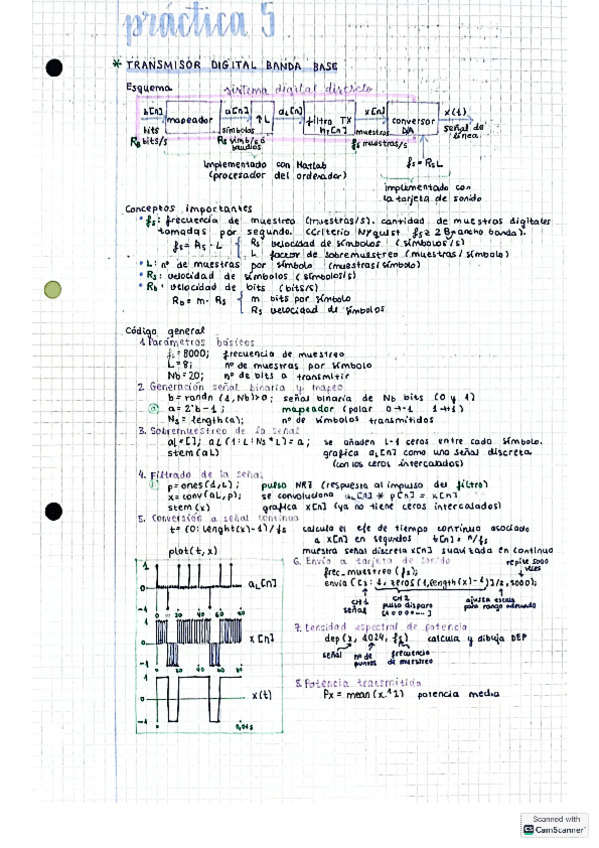 práctica 5
* TRANSMISOR DIGITAL BANDA BASE
Esquema
sistema digital discreto
b[n] mapeador a[n] ↑L aL[n] filtro TX hT[n] x[n] conversor D/A x(t)
bits símbolos muestras señal de línea
Rb bits/s Rs símb/s ó baudios fs muestras/s
Implementado con Matlab
(procesador del ordenador)
fs = Rs L
implementado con
la tarjeta de sonido
Conceptos importantes
• fs: frecuencia de muestreo (muestras/s). cantidad de muestras digitales
tomadas por segundo. (Criterio Nyquist fs ≥ 2B ancho banda).
fs = Rs · L { Rs velocidad de símbolos (símbolos/s)
L factor de sobremuestreo (muestras/símbolo)
• L: nº de muestras por símbolo (muestras/símbolo)
• Rs: velocidad de símbolos (símbolos/s)
• Rb: velocidad de bits (bits/s)
Rb = m · Rs { m bits por símbolo
Rs velocidad de símbolos
Código general
1. Parámetros básicos
fs = 8000; frecuencia de muestreo
L = 8; nº de muestras por símbolo
Nb = 20; nº de bits a transmitir
2. Generación señal binaria y mapeo
b = randn (1,Nb)>0; señal binaria de Nb bits (0 y 1)
a = 2*b-1; mapeador (polar 0→-1 1→1)
Ns = length(a); nº de símbolos transmitidos
3. Sobremuestreo de la señal
aL=[]; aL(1:L:Ns*L)=a; se añaden L-1 ceros entre cada símbolo.
stem(aL) grafica aL[n] como una señal discreta
(con los ceros intercalados)
4. Filtrado de la señal
p=ones(1,L); pulso NRZ (respuesta al impulso del filtro)
x=conv(aL,p); se convoluciona aL[n] * p[n] = x[n]
stem(x) grafica x[n] (ya no tiene ceros intercalados)
5. Conversión a señal continua
t=(0:lenght(x)-1)/fs calcula el eje de tiempo continuo asociado
a x[n] en segundos t[n] = n/fs
plot(t,x) muestra señal discreta x[n] suavizada en continuo
6. Envío a tarjeta de sonido
repite 5000 veces
frec_muestreo (fs);
CH1 señal
CH2 pulso disparo
ajusta escala
para rango adecuado
7. Densidad espectral de potencia
dep(x, 1024, fs) calcula y dibuja DEP
señal nº de puntos frecuencia de muestreo
8. Potencia transmitida
Px = mean(x.^2) potencia media
1
0
-1
aL[n]
0 20 40 60 80
1
0
-1
x[n]
0 20 40 60 80
1
0
-1
x(t)
0
Scanned with
CamScanner